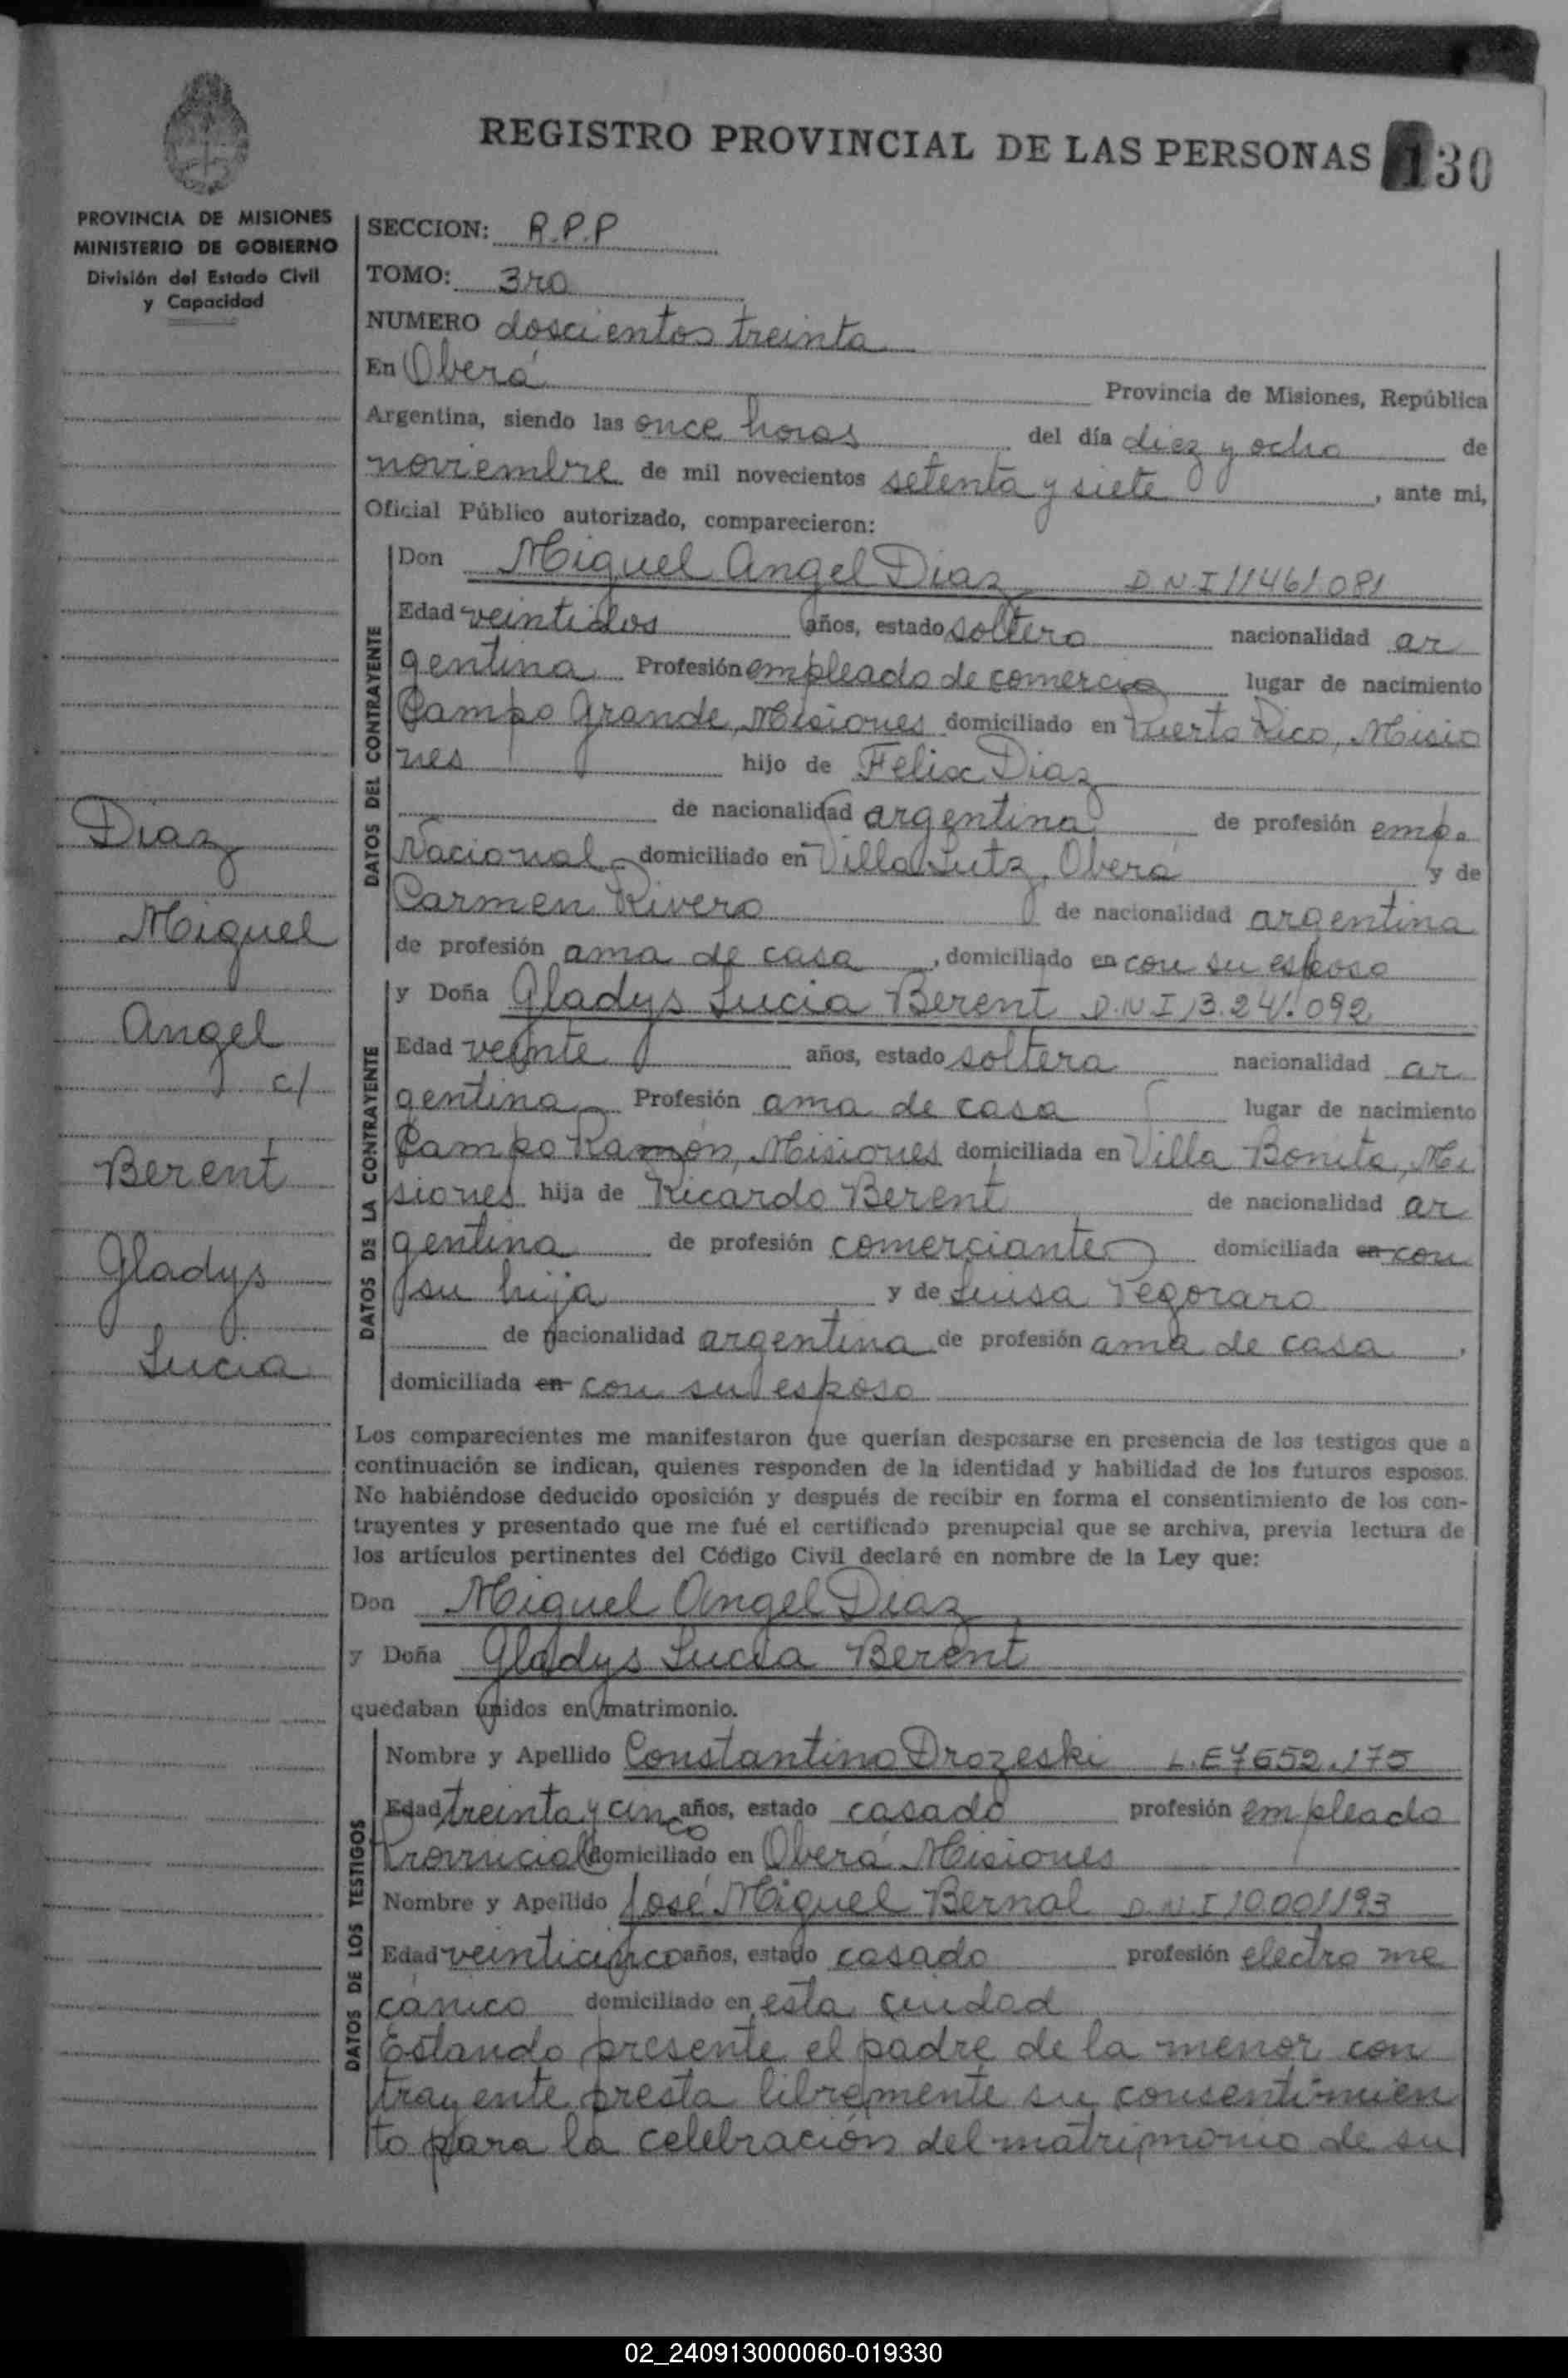 REGISTRO PROVINCIAL DE LAS PERSONAS 130
PROVINCIA DE MISIONES
MINISTERIO DE GOBIERNO
División del Estado Civil
y Capacidad
SECCION: R.P.P
TOMO: 3ro
NUMERO doscientos treinta
En Oberá Provincia de Misiones, República
Argentina, siendo las once horas del día diez y ocho de
noviembre de mil novecientos setenta y siete, ante mi,
Oficial Público autorizado, comparecieron:
DATOS DEL CONTRAYENTE
Don Miguel Angel Diaz D.N.I 11461.081
Edad veintidos años, estado soltero nacionalidad ar
gentina Profesión empleado de comercio lugar de nacimiento
Campo Grande, Misiones domiciliado en Puerto Rico, Misio
nes hijo de Felix Diaz
de nacionalidad argentina de profesión emp.
Nacional domiciliado en Villa Lutz, Oberá y de
Carmen Rivero de nacionalidad argentina
de profesión ama de casa, domiciliado en con su esposo
DATOS DE LA CONTRAYENTE
y Doña Gladys Lucia Berent D.N.I 13.241.092
Edad veinte años, estado soltera nacionalidad ar
gentina Profesión ama de casa lugar de nacimiento
Campo Ramón, Misiones domiciliada en Villa Bonita, Mi
siones hija de Ricardo Berent de nacionalidad ar
gentina de profesión comerciante domiciliada en con
su hija y de Luisa Pegoraro
de nacionalidad argentina de profesión ama de casa,
domiciliada en con su esposo
Diaz
Miguel
Angel
c/
Berent
Gladys
Lucia
Los comparecientes me manifestaron que querían desposarse en presencia de los testigos que a
continuación se indican, quienes responden de la identidad y habilidad de los futuros esposos.
No habiéndose deducido oposición y después de recibir en forma el consentimiento de los con-
trayentes y presentado que me fué el certificado prenupcial que se archiva, previa lectura de
los artículos pertinentes del Código Civil declaré en nombre de la Ley que:
Don Miguel Angel Diaz
y Doña Gladys Lucia Berent
quedaban unidos en matrimonio.
DATOS DE LOS TESTIGOS
Nombre y Apellido Constantino Drozeski L.E 7652.175
Edad treinta y cinco años, estado casado profesión empleado
Provincial domiciliado en Oberá Misiones
Nombre y Apellido José Miguel Bernal D.N.I 10.001193
Edad veinticinco años, estado casado profesión electro me
cánico domiciliado en esta ciudad
Estando presente el padre de la menor con
trayente presta libremente su consentimien
to para la celebración del matrimonio de su
02_240913000060-019330